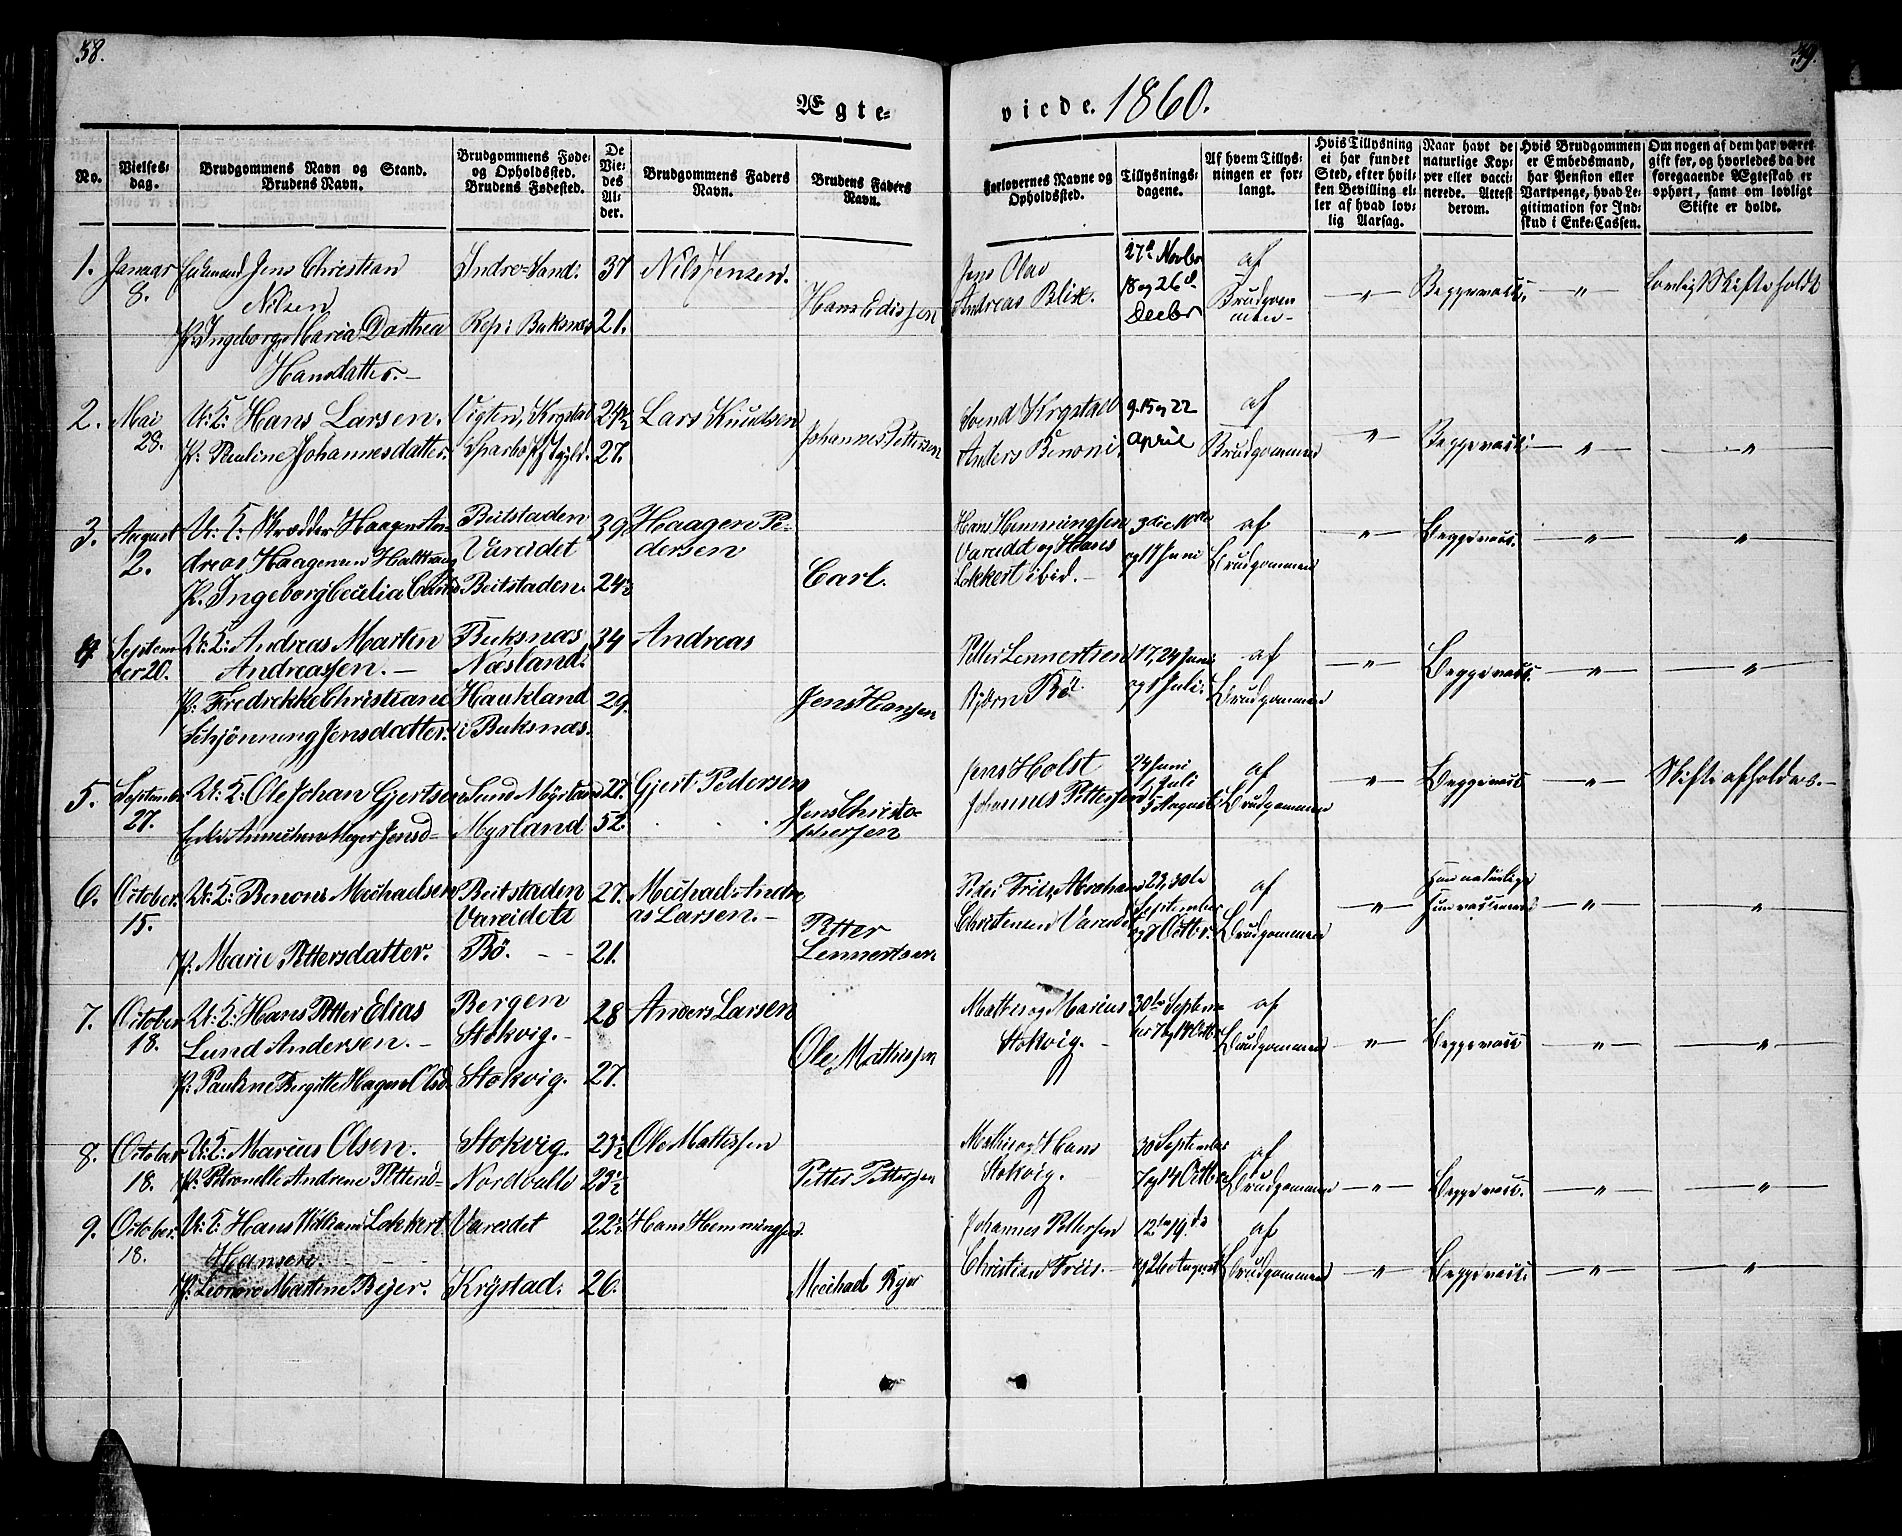 38.
39.
Ægte-
viede. 1860.
No.
Vielses-
dag.
Brudgommens Navn og Stand.
Brudens Navn.
Brudgommens Føde-
og Opholdssted.
Brudens Fødested.
De
Vie-
des
Al-
der.
Brudgommens Faders
Navn.
Brudens Faders
Navn.
Forlovernes Navne og
Opholdssted.
Tillysnings-
dagene.
Af hvem Tillys-
ningen er for-
langt.
Hvis Tillysning
ei har fundet
Sted, efter hvil-
ken Bevilling el-
ler af hvad lov-
lig Aarsag.
Naar havt de
naturlige Kop-
per eller vacci-
nerede. Attest
derom.
Hvis Brudgommen
er Embedsmand,
har Pension eller
Vartpenge, hvad Le-
gitimation for Ind-
skud i Enke-Cassen.
Om nogen af dem har været
gift før, og hvorledes da det
foregaaende Ægteskab er
ophørt, samt om lovligt
Skifte er holdt.
1. Januar 8.
Jens Christian
Nilsen
P. Ingeborg Maria Dorthea
Hansdatter.
Indre-Sand.
Buksnæs
37
21.
Nils Jensen.
Hans Edissen
Jens Olai
Andreas Blix.
27de Novbr
18 og 26d.
Decbr
af
Brudgommen
„
„
Lovlig Skifte holdt
2. Mai 28.
U: K: Hans Larsen.
P: Pauline Johannesdatter.
24½
27.
Lars Knudsen
Johannes Pettersen
Svend Krystad
Anders Benoni.
9. 15 og 22
April
af
Brudgommen
„
„
„
3. August 2.
U: K: Skrædder Haagen An-
dreas Haagensen
P. Ingeborg Cecilia
Beitstaden
Vareidet
Beitstaden.
39
24½
Haagen Pe-
dersen
Carl.
Hans Hemmingsen
Vareidet og Hans
Lokkert ibid.
og 17 Juni
af
Brudgommen
„
Begge vacc.
„
„
4 Septem-
ber 20.
U: K: Andreas Martin
Andreassen.
P: Fredrikke Christiane
Schjønning Jensdatter.
Buksnæs
Næsland:
Haukland
i Buksnæs.
34
29.
Andreas
Jens Hansen
Petter Lennertsen
Bjørn Bö
17, 24 Juni
og 1 Juli.
af
Brudgommen
„
Begge vacc.
„
„
5. September
27.
U: K: Ole Johan Gjertsen
Sund Myrland
Myrland
27.
52.
Gjert Pedersen
Jens Christo-
phersen
Jens Holst
Johannes Pettersen
24 Juni
1 Juli
5 August
af
Brudgommen
„
Begge vacc
„
Skifte afholdes.
6. October
15.
U: K: Benoni Michaelsen
P. Marie Pettersdatter.
Beitstaden
Vareidet
Bö.
27.
21.
Michael Andre-
as Larsen.
Petter
Lennertsen
Christensen Vareidet
23, 30te
September
og 7 Octbr.
af
Brudgommen
„
„
„
7. October
18.
U: K: Hans Petter Elias
Lund Andersen.
P. Pauline Birgitte
Bergen
Stokvig.
Stokvig.
28
27.
Anders Larsen
Ole Mathissen
Mathis og Marius
Stokvig.
30te Septem-
ber 7 og 14 Octbr
af
Brudgommen
„
Begge vacc
„
„
8. October
18.
U: K: Marcus Olsen.
P. Petronelle Andrene
Stokvig.
23½
23½
Ole Mathissen
Petter Pettersen
Mathis og Hans
Stokvig.
30 September
7 og 14 Octbr
af
Brudgommen
„
Begge vacc.
„
„
9. October.
18.
U: K: Hans William Lokkert
Hansen.
P. Leonore Martine Bejer.
Vareidet
Krystad.
22½
26.
Hans Hemmingsen.
Michael Bejer
Johannes Pettersen
Christian Friis.
12te 19de
og 26 August
af
Brudgommen
„
Begge vacc.
„
„